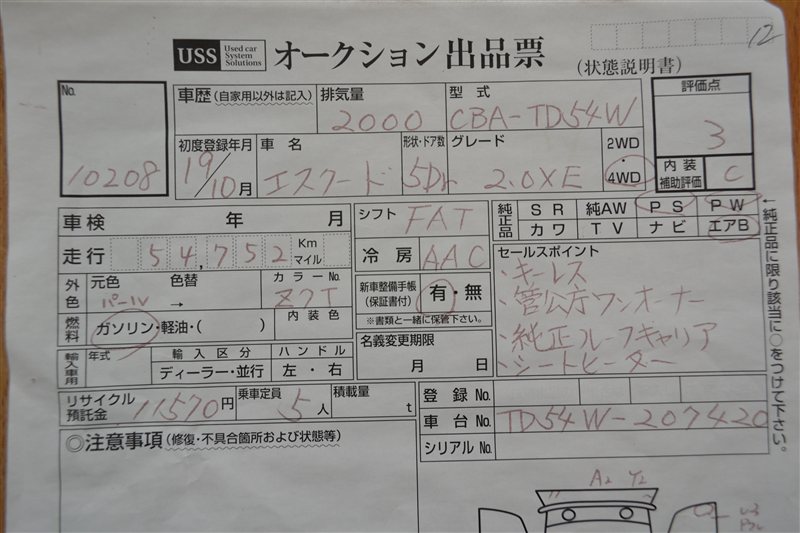 12
USS Used car System Solutions オークション出品票 (状態説明書)
No.
10208
車歴 (自家用以外は記入) 排気量 2000 型式 CBA-TD54W
評価点 3
内装補助評価 C
初度登録年月 19/10月 車名 エスクード 形状・ドア数 5Dr グレード 2.0XE 2WD・4WD
車検 年 月
シフト FAT
純正品 SR 純AW PS PW
カワ TV ナビ エアB
走行 54,752 Km マイル
冷房 AAC
←純正品に限り該当に○をつけて下さい。
外色 元色 パール 色替 → カラーNo. Z7T
内装色
新車整備手帳 (保証書付) 有・無
※書類と一緒に保管下さい。
セールスポイント
・キーレス
・管公庁ワンオーナー
・純正ルーフキャリア
・シートヒーター
燃料 ガソリン・軽油・( )
輸入車用 年式 輸入区分 ハンドル
ディーラー・並行 左・右
名義変更期限
月 日
リサイクル預託金 11570円 乗車定員 5人 積載量 t
登録No.
車台No. TD54W-207420
シリアルNo.
◎注意事項 (修復・不具合箇所および状態等)
A2 Y2